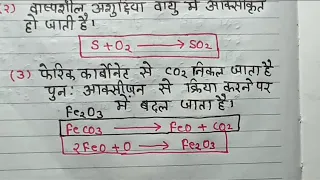 (२) वाष्पशील अशुद्धियां वायु में आक्सीकृत
हो जाती है।
S + O₂ ⟶ SO₂
(3) फेरिक कार्बोनेट से CO₂ निकल जाता है
पुनः आक्सीजन से क्रिया करने पर
Fe₂O₃ में बदल जाता है।
FeCO₃ ⟶ FeO + CO₂
2FeO + O ⟶ Fe₂O₃